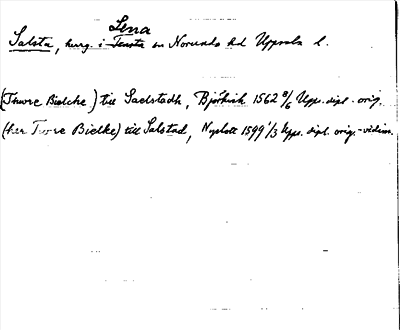 Lena
Salsta, herrg. i Tensta sn Norunda hd Uppsala l.
(Thure Bielche) till Saelstadh, Björkvik 1562 8/6 Upps. dipl. orig.
(her Twre Bielke) till Salstad, Nyslott 1599 1/3 Upps. dipl. orig.-vidim.